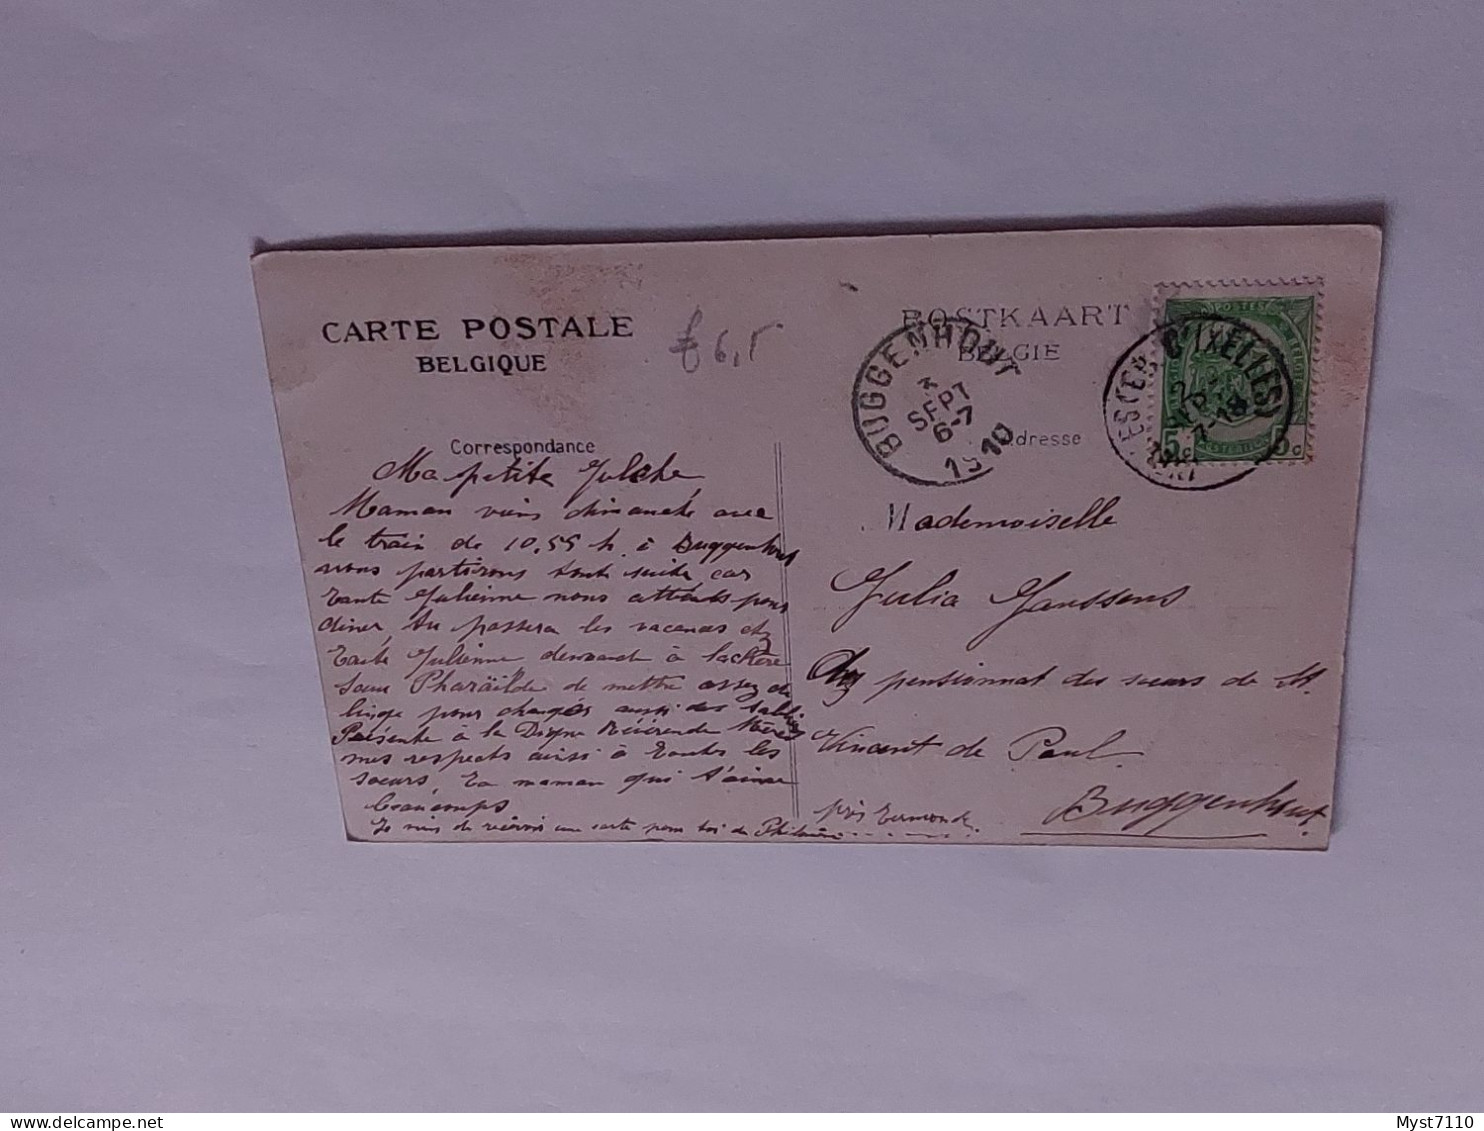 CARTE POSTALE
BELGIQUE
POSTKAART
BELGIE
6,5
BUGGENHOUT
3
SEPT
6-7
1910
D'IXELLES)
2
SEPT
7-18
5c
5c
Correspondance
Adresse
Ma petite Julche
Maman viens dimanche avec
le train de 10.55 h. à Buggenhout
nous partirons tout suite car
Tante Julienne nous attends pour
diner tu passera les vacances chez
Tante Julienne demande à la chère
Sœur Pharaïlde de mettre assez de
linge pour changer aussi des
Présente à la Digne Révérende Mère
mes respects ainsi à toutes les
soeurs, Ta maman qui t'aime
beaucoups
Je viens de recevoir une carte pour toi de
Mademoiselle
Julia Janssens
pensionnat des sœurs de St
Vincent de Paul
près Termonde.
Buggenhout.
Myst7110